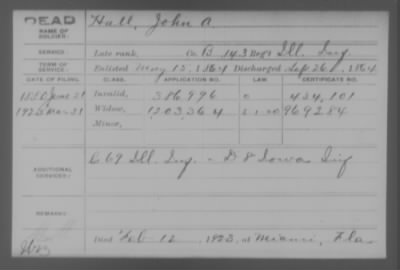 DEAD
NAME OF SOLDIER: Hall, John A.
SERVICE: Late rank, Co. B, 143 Reg't Ill. Inf
TERM OF SERVICE: Enlisted May 13, 1864 Discharged Sep 26, 1864
DATE OF FILING. CLASS. APPLICATION NO. LAW. CERTIFICATE NO.
1880 June 21 Invalid, 386996 434,101
1923 Mar 31 Widow, 1203364 969284
Minor,
ADDITIONAL SERVICES: C 69 Ill. Inf. - D 8 Iowa Inf
REMARKS:
Died Feb 12, 1923, at Miami, Fla.